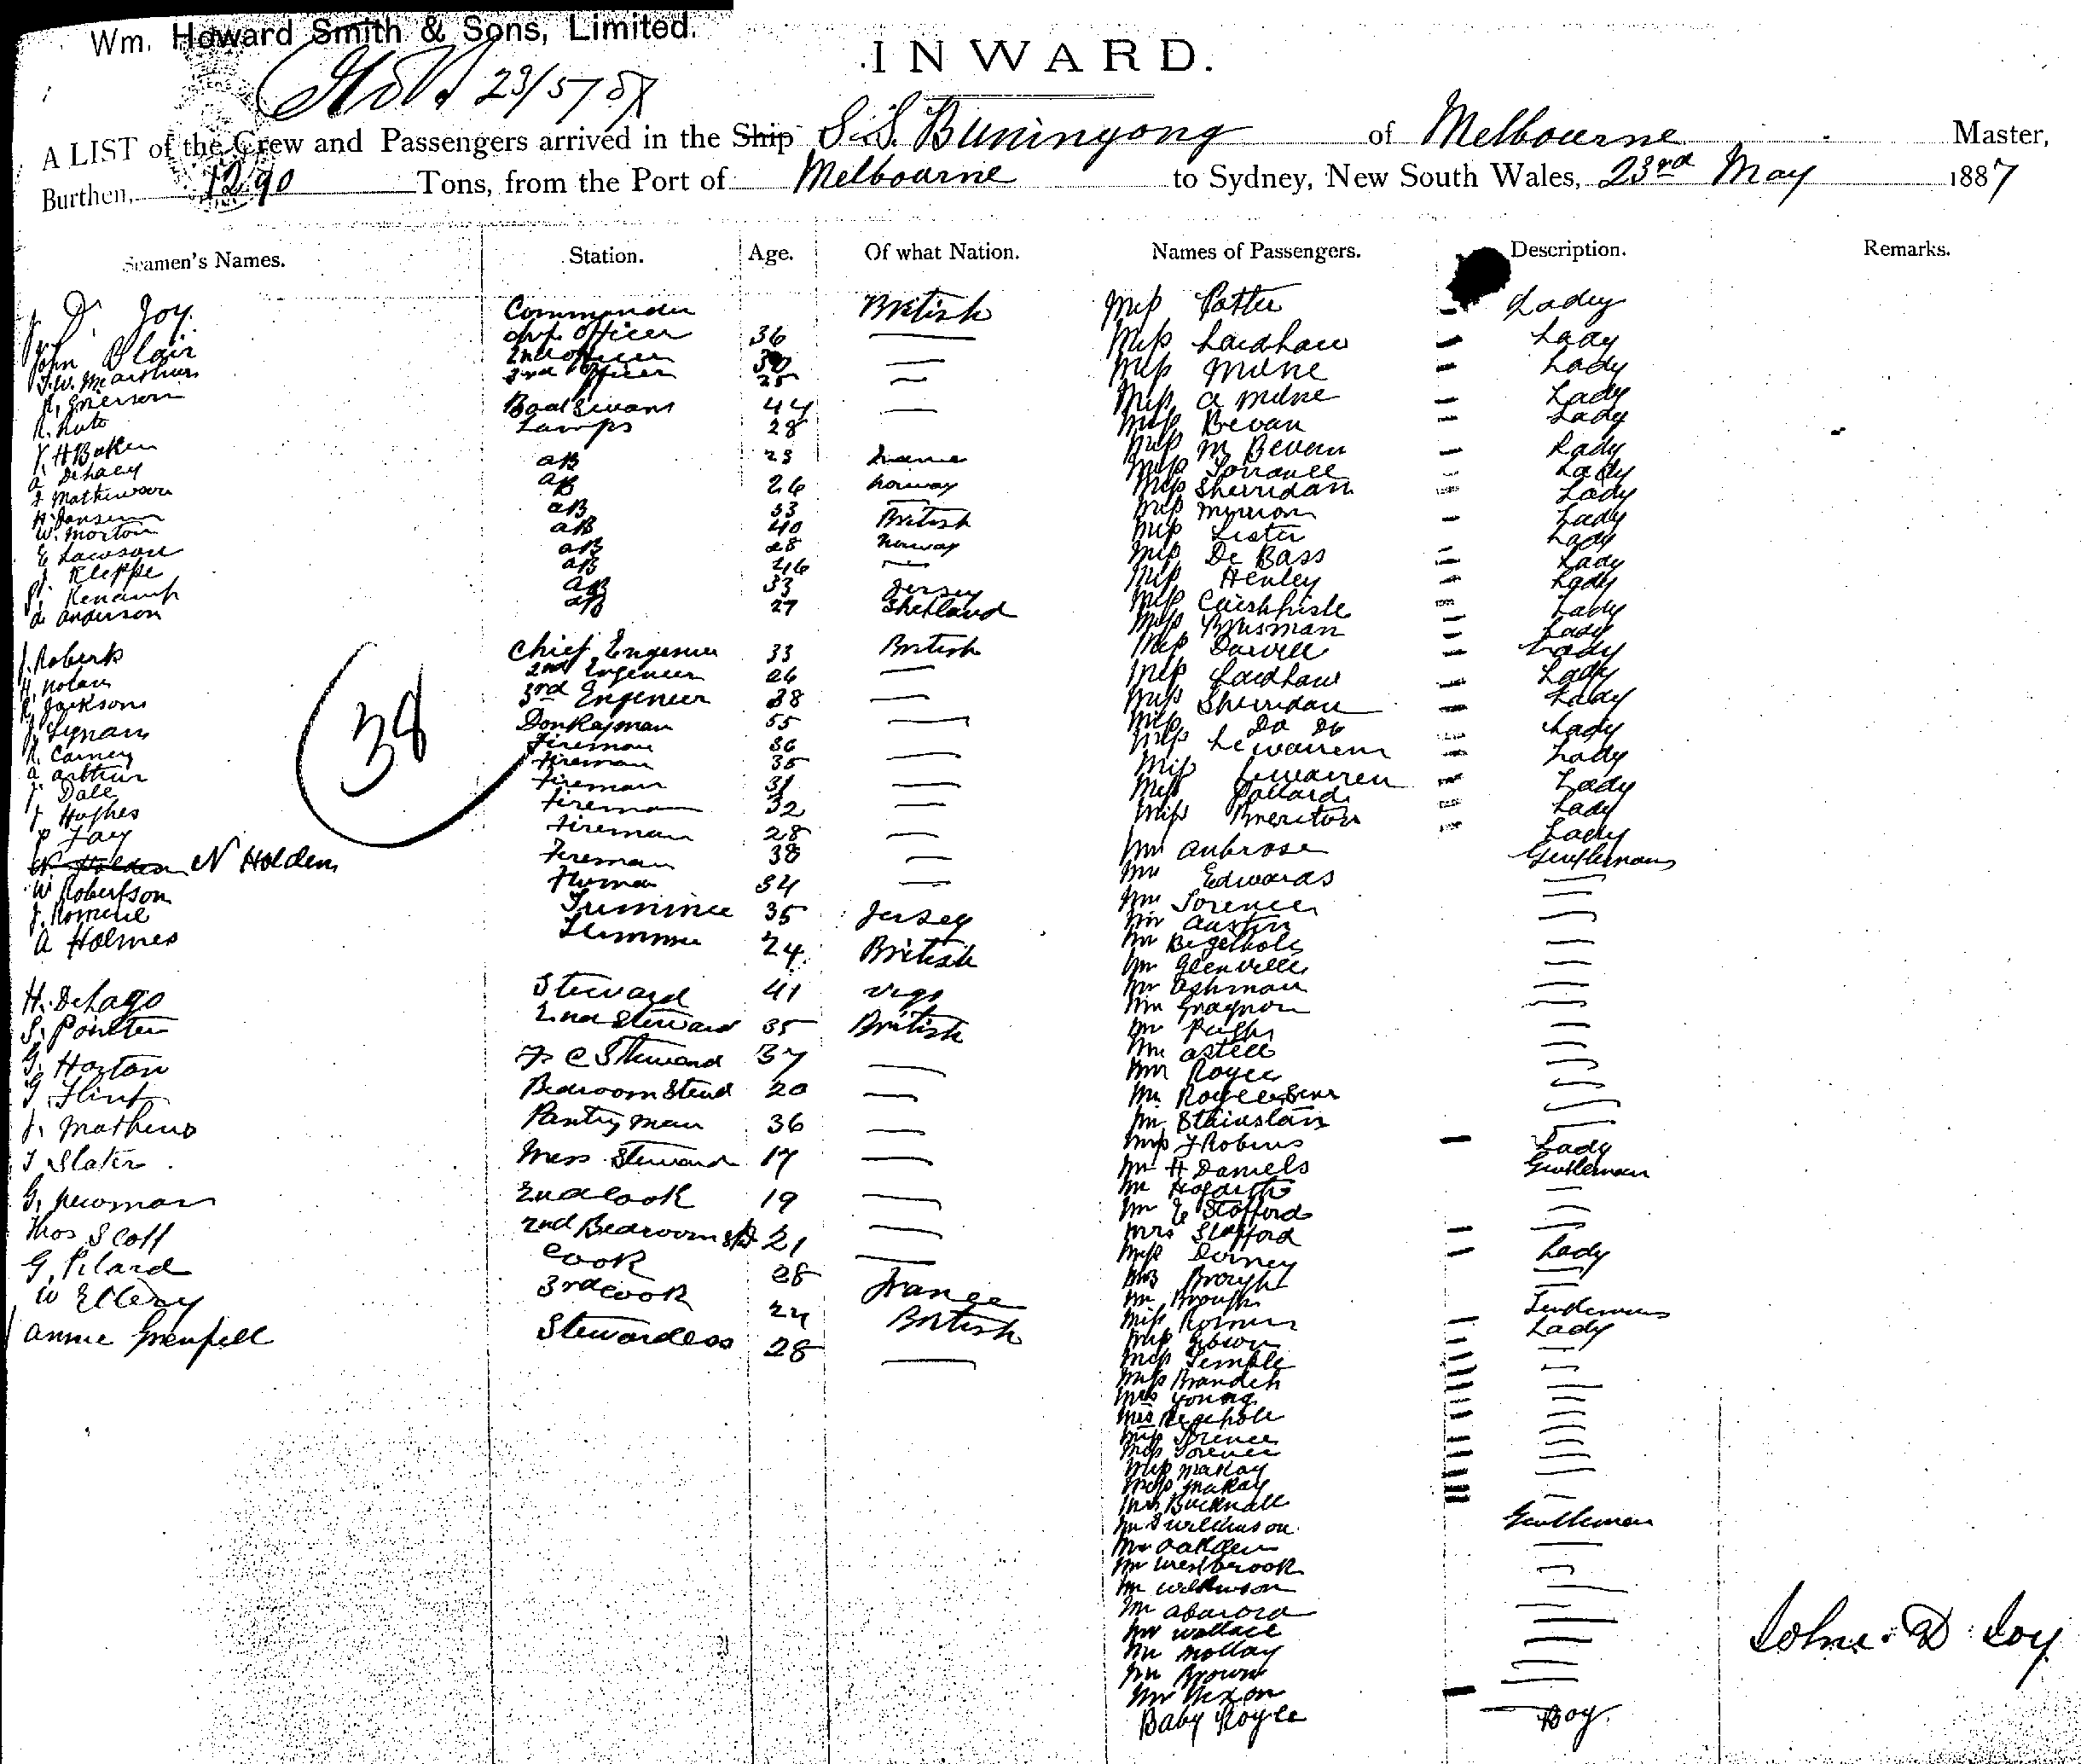 Wm. Howard Smith & Sons, Limited.
INWARD.
23/5/87
A LIST of the Crew and Passengers arrived in the Ship S.S. Buninyong of Melbourne Master,
Burthen, 1290 Tons, from the Port of Melbourne to Sydney, New South Wales, 23rd May 1887
Seamen's Names. Station. Age. Of what Nation. Names of Passengers. Description. Remarks.
J. D. Joy. Commander British Miss Potter Lady
John Blair Officer 36 — Miss Laidlaw Lady
2nd Officer 30 — Miss Milne Lady
R. Grierson 3rd Officer 25 — Miss A Milne Lady
Boatswain 44 — Miss Bevan Lady
J. H Baker Lamps 28 Miss M Bevan Lady
A Delacy AB 23 France Miss Torrance Lady
J Mathieson AB 26 Norway Miss Sherridan Lady
H. Jansen AB 33 — Miss Lady
W. Morton AB 40 British Miss Lister Lady
E Lawson AB 28 Norway Miss De Bass Lady
J Kleppe AB 46 — Miss Henley Lady
AB 33 Jersey Miss Lady
A Anderson AB 27 Shetland Miss Lady
J. Roberts Chief Engineer 33 British Miss Lady
H. Nolan 2nd Engeneer 26 — Miss Laidlaw Lady
R. Jackson 3rd Engeneer 38 — Miss Sherridan Lady
J. Lynam Donkeyman 55 — Miss Do Do Lady
R. Carney Fireman 36 Miss Lewarren Lady
A Arthur Fireman 35 — Miss Lewarren Lady
J Dale Fireman 31 — Miss Pollard Lady
J Hughes Fireman 32 — Miss Lady
38
P Fay Fireman 28 — Mr Ambrose Gentleman
N Holden N Holden Fireman 38 — Mr Edwards —
W Robertson Fireman 34 — Mr Torence —
J. Romeril Trimmer 35 Jersey Mr Austin —
A Holmes Trimmer 24 British Mr Begehole —
Mr Glenville —
H. DeLago Steward 41 Vigo Mr Ashman —
S. Poulter 2nd Steward 35 British Mr —
Mr Pugh —
G. Horton F C Steward 37 — Mr Astell —
G Flint Bedroom Stewd 20 — Mr Royce —
Mr Royce Senr —
J. Mathews Pantryman 36 — Mr —
J Slater Mess Steward 17 — Miss J Robins Lady
Mr H Daniels Gentleman
G. Newman 2nd Cook 19 — Mr Hogarth —
Mr E Stafford —
Thos Scott 2nd Bedroom Std 21 — Mrs Stafford
G. Pilard Cook 28 France Miss Lady
W Ellery 3rd Cook 24 British Mrs Brough —
Mr Brough Gentleman
Annie Grenfell Stewardess 28 — Miss Lady
Miss Gibson —
Miss Temple —
Miss —
Mrs Young —
Mrs Begehole —
Miss Torence —
Miss Torence —
Miss MaKay —
Miss MaKay —
Mrs Bucknall —
Mr S Wilkinson Gentleman
Mr Oakden —
Mr Westbrook —
Mr Wilkinson —
Mr —
Mr Wallace —
Mr Mollay —
Mr Brown —
Mr Nixon
Baby Royce — Boy.
John. D Joy